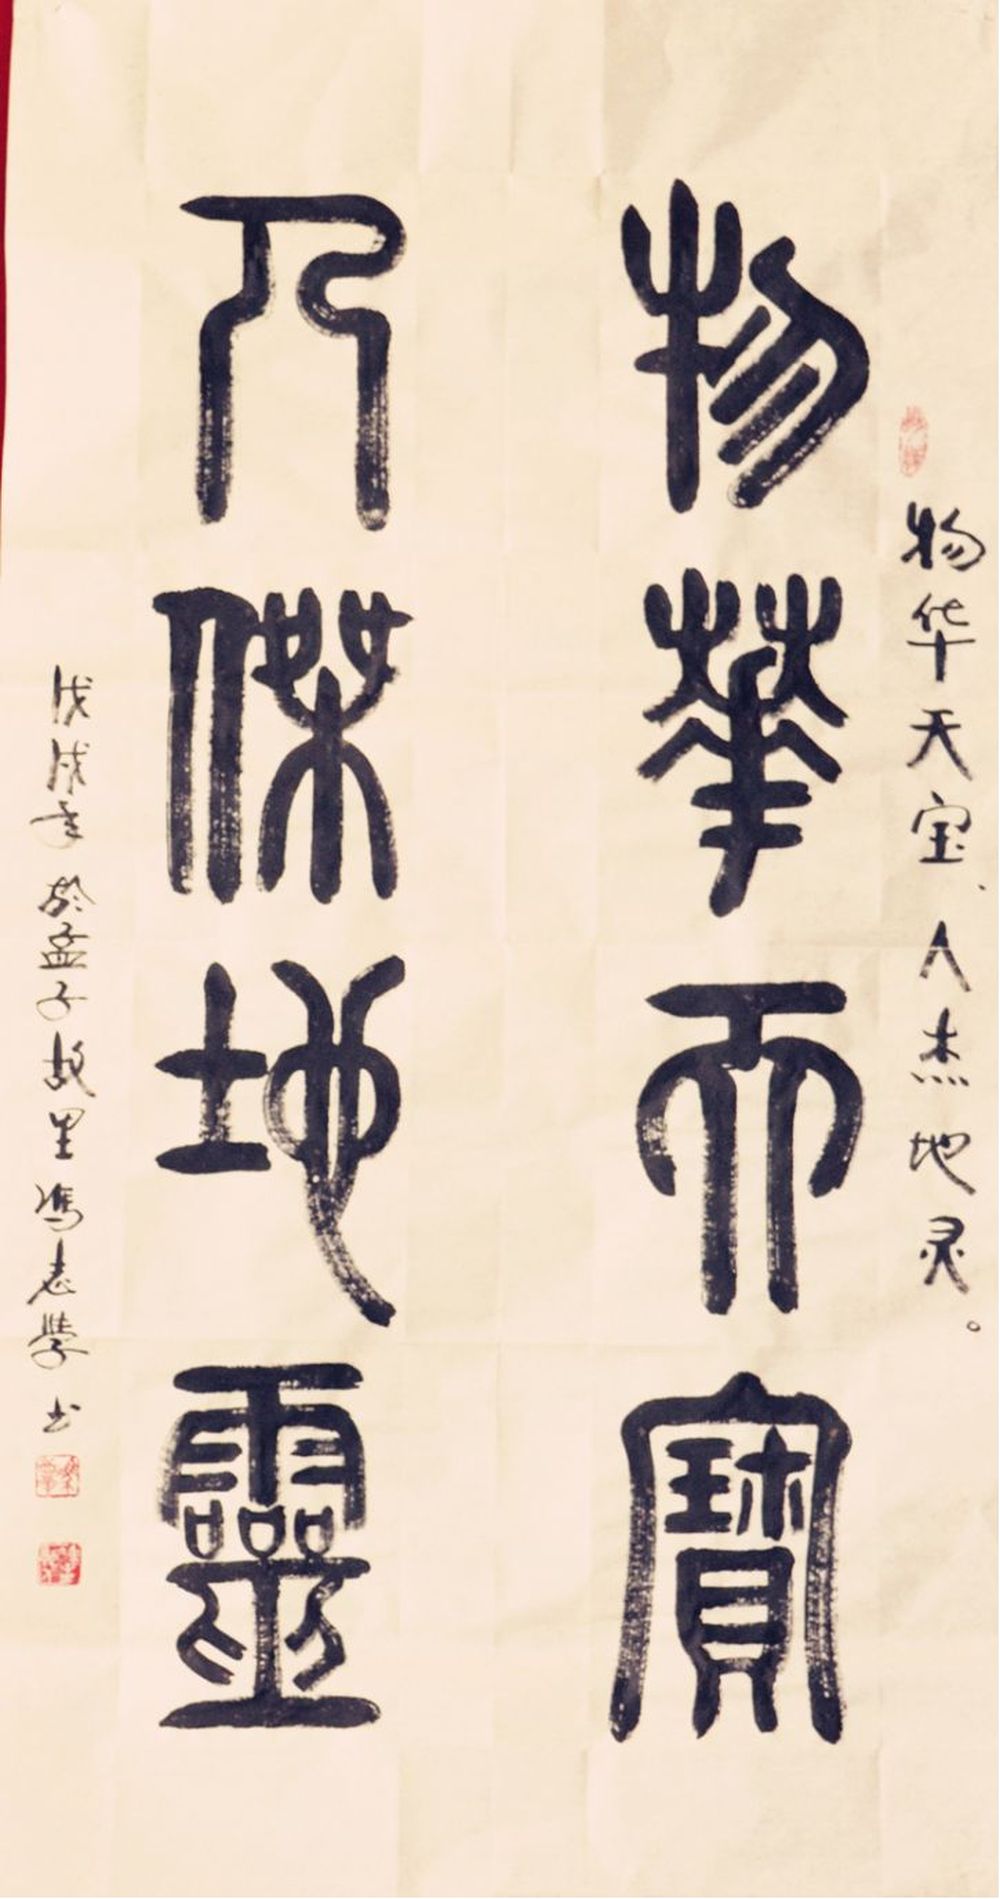 物華天寶
人傑地靈
物华天宝、人杰地灵。
戊戌年於孟子故里冯志学书